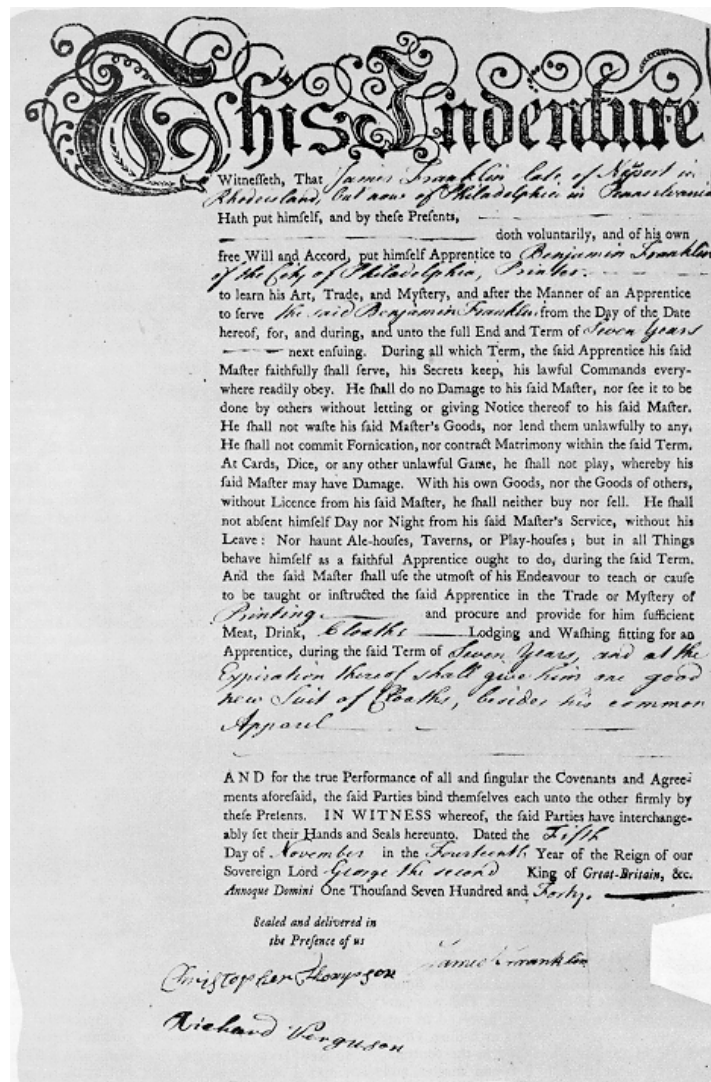 This Indenture
Witneſſeth, That James Franklin late of Newport in
Rhodeisland, but now of Philadelphia in Pennsylvania
Hath put himſelf, and by theſe Preſents,
doth voluntarily, and of his own
free Will and Accord, put himſelf Apprentice to Benjamin Franklin
of the City of Philadelphia, Printer.
to learn his Art, Trade, and Myſtery, and after the Manner of an Apprentice
to ſerve the said Benjamin Franklin from the Day of the Date
hereof, for, and during, and unto the full End and Term of Seven Years
next enſuing. During all which Term, the ſaid Apprentice his ſaid
Maſter faithfully ſhall ſerve, his Secrets keep, his lawful Commands every-
where readily obey. He ſhall do no Damage to his ſaid Maſter, nor ſee it to be
done by others without letting or giving Notice thereof to his ſaid Maſter.
He ſhall not waſte his ſaid Maſter's Goods, nor lend them unlawfully to any.
He ſhall not commit Fornication, nor contract Matrimony within the ſaid Term.
At Cards, Dice, or any other unlawful Game, he ſhall not play, whereby his
ſaid Maſter may have Damage. With his own Goods, nor the Goods of others,
without Licence from his ſaid Maſter, he ſhall neither buy nor ſell. He ſhall
not abſent himſelf Day nor Night from his ſaid Maſter's Service, without his
Leave: Nor haunt Ale-houſes, Taverns, or Play-houſes; but in all Things
behave himſelf as a faithful Apprentice ought to do, during the ſaid Term.
And the ſaid Maſter ſhall uſe the utmoſt of his Endeavour to teach or cauſe
to be taught or inſtructed the ſaid Apprentice in the Trade or Myſtery of
Printing and procure and provide for him ſufficient
Meat, Drink, Cloaths Lodging and Waſhing fitting for an
Apprentice, during the ſaid Term of Seven Years, and at the
Expiration thereof shall give him one good
new Suit of Cloaths, besides his common
Apparel
AND for the true Performance of all and ſingular the Covenants and Agree-
ments aforeſaid, the ſaid Parties bind themſelves each unto the other firmly by
theſe Preſents. IN WITNESS whereof, the ſaid Parties have interchange-
ably ſet their Hands and Seals hereunto. Dated the Fifth
Day of November in the Fourteenth Year of the Reign of our
Sovereign Lord George the second King of Great-Britain, &c.
Annoque Domini One Thouſand Seven Hundred and Forty.
Sealed and delivered in
the Preſence of us
Christopher Thompson James Franklin
Richard Verguson